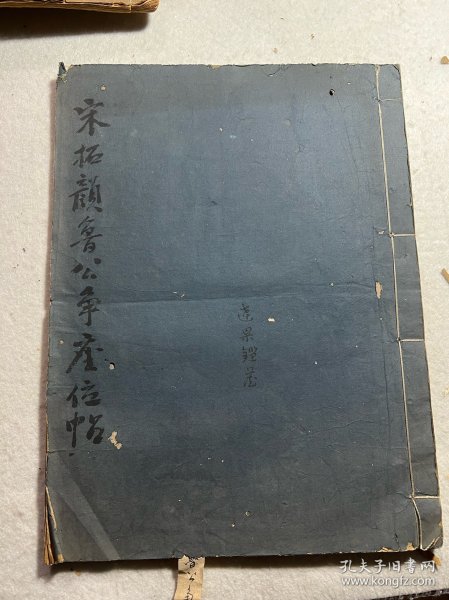 宋拓顏魯公争座位帖
達
藏
孔夫子旧书网
www.kongfz.com